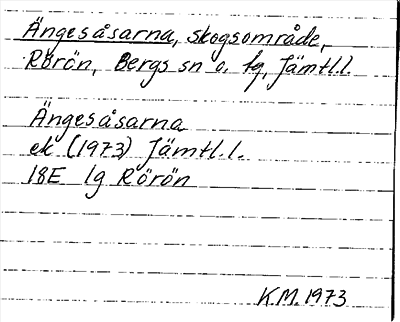 Ängesåsarna, skogsområde,
Rörön, Bergs sn o. tg, Jämtl.l.
Ängesåsarna
ek (1973) Jämtl.l.
18E 1g Rörön
K.M. 1973